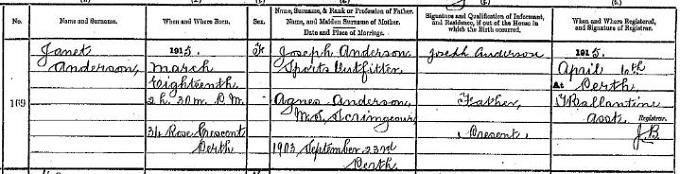 No.
Name and Surname.
When and Where Born.
Sex.
Name, Surname, & Rank or Profession of Father.
Name, and Maiden Surname of Mother.
Date and Place of Marriage.
Signature and Qualification of Informant,
and Residence, if out of the House in
which the Birth occurred.
When and Where Registered,
and Signature of Registrar.
169
Janet
Anderson,
1915,
March
Eighteenth
2h. 30m. P.M.
34 Rose Crescent
Perth
F
Joseph Anderson
Sports Outfitter,
Agnes Anderson
M.S. Scrimgeour
1903, September 23rd
Perth
Joseph Anderson
Father,
(Present)
1915,
April
At Perth
Ballantine
Asst. Registrar.
J.B.